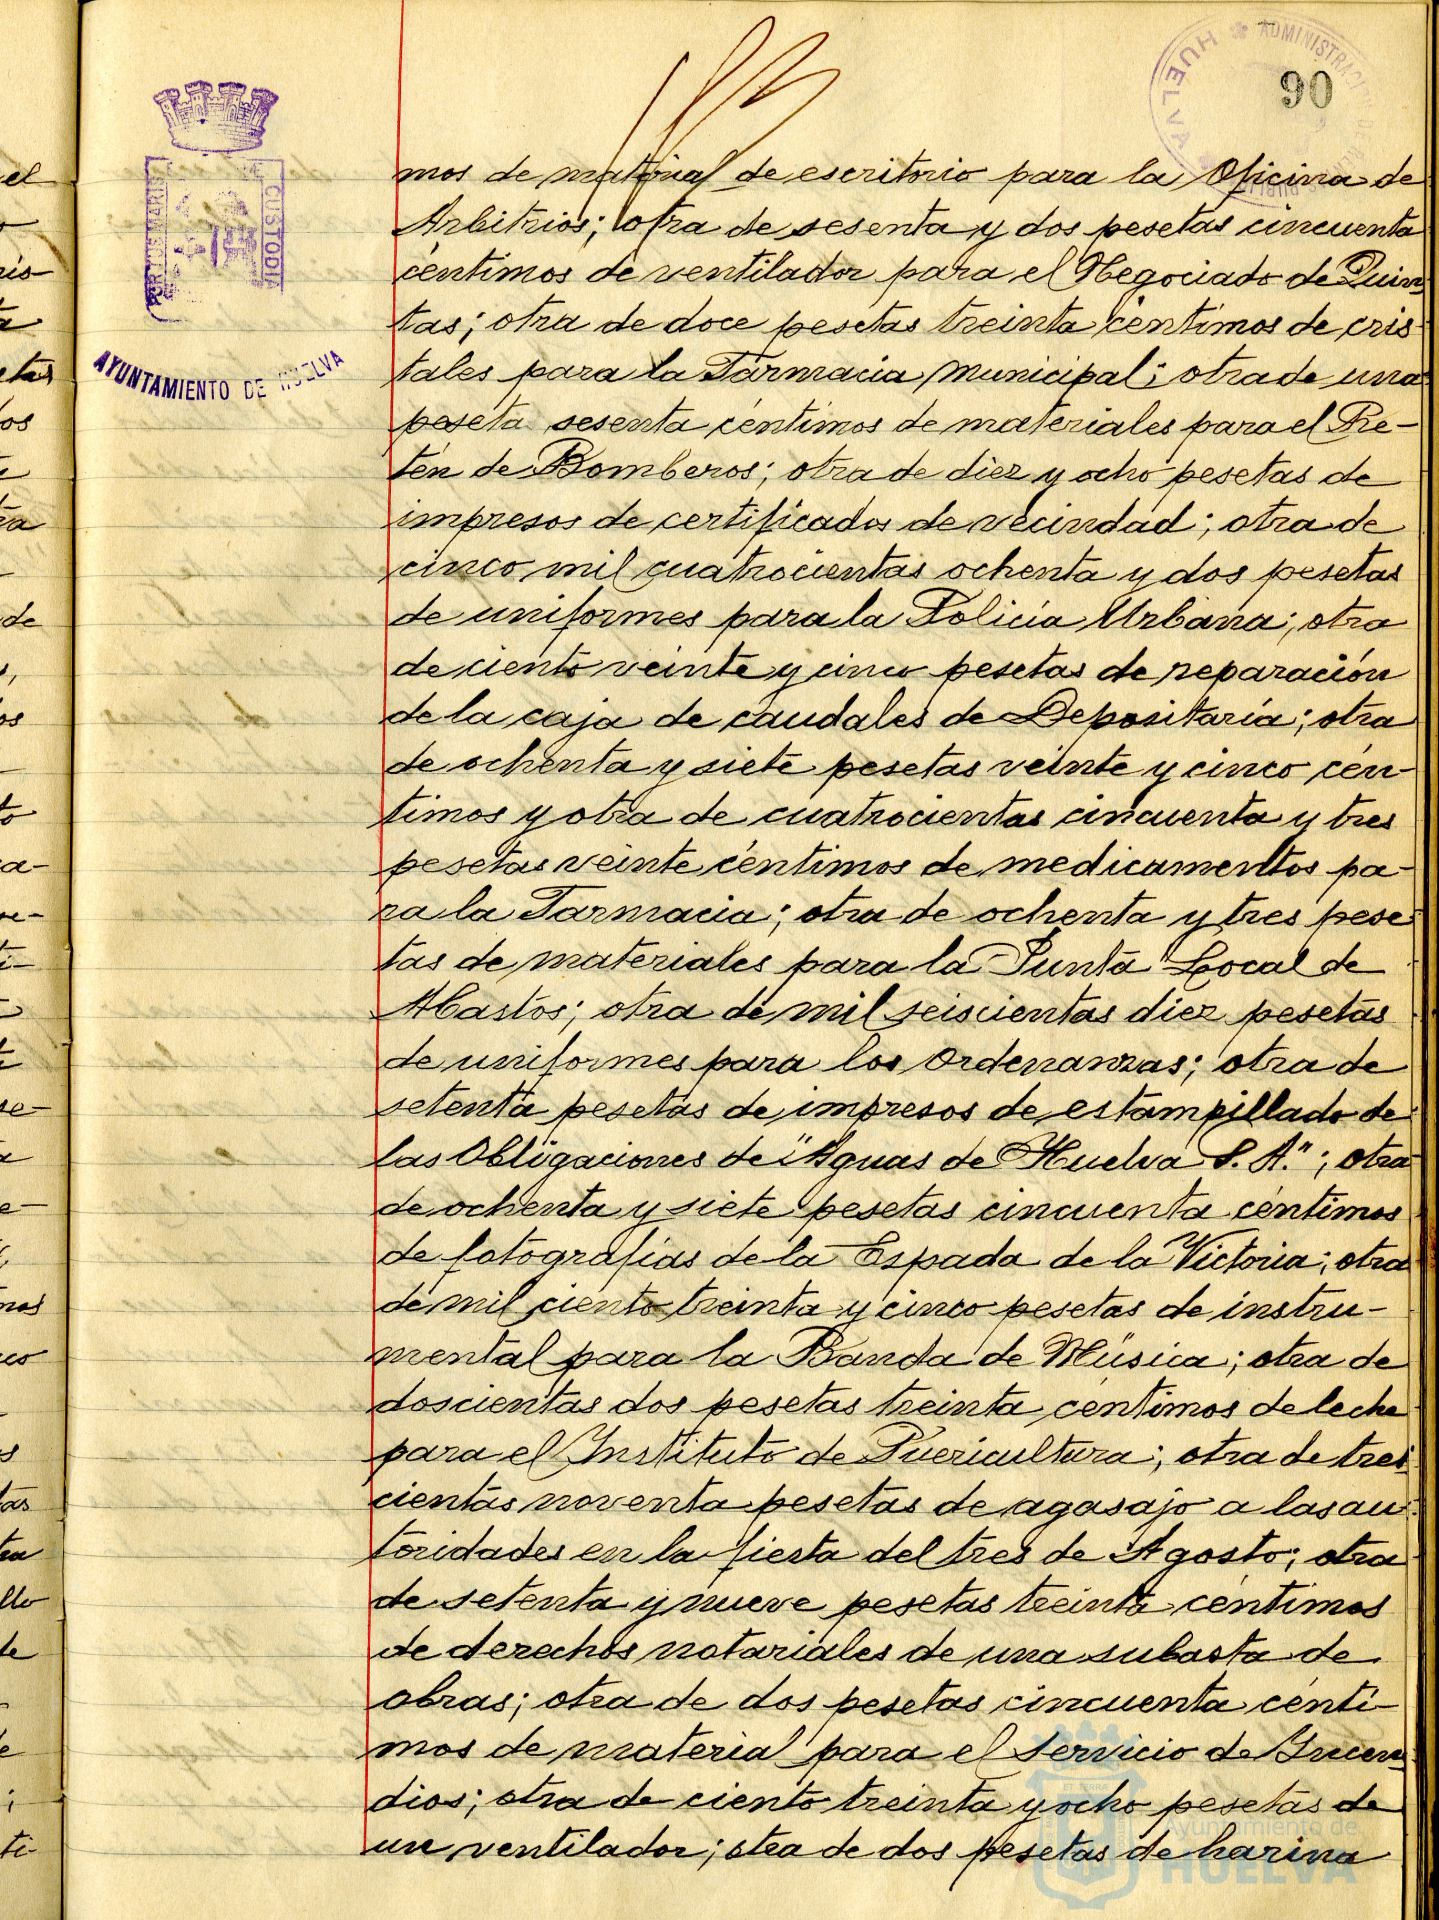 90
HUELVA * ADMINISTRACIÓN DE
PORTUS MARIS CUSTODIA
AYUNTAMIENTO DE HUELVA
mos de material de escritorio para la Oficina de
Arbitrios; otra de sesenta y dos pesetas cincuenta
céntimos de ventilador para el Negociado de Quin
tas; otra de doce pesetas treinta céntimos de cris
tales para la Farmacia Municipal; otra de una
peseta sesenta céntimos de materiales para el Re-
tén de Bomberos; otra de diez y ocho pesetas de
impresos de certificados de vecindad; otra de
cinco mil cuatrocientas ochenta y dos pesetas
de uniformes para la Policía Urbana; otra
de ciento veinte y cinco pesetas de reparación
de la caja de caudales de Depositaría; otra
de ochenta y siete pesetas veinte y cinco cén-
timos y otra de cuatrocientas cincuenta y tres
pesetas veinte céntimos de medicamentos pa-
ra la Farmacia; otra de ochenta y tres pese-
tas de materiales para la Junta Local de
Abastos; otra de mil seiscientas diez pesetas
de uniformes para los Ordenanzas; otra de
setenta pesetas de impresos de estampillado de
las Obligaciones de "Aguas de Huelva S. A."; otra
de ochenta y siete pesetas cincuenta céntimos
de fotografías de la Espada de la Victoria; otra
de mil ciento treinta y cinco pesetas de instru-
mental para la Banda de Música; otra de
doscientas dos pesetas treinta céntimos de leche
para el Instituto de Puericultura; otra de tres
cientas noventa pesetas de agasajo a las au-
toridades en la fiesta del tres de Agosto; otra
de setenta y nueve pesetas treinta céntimos
de derechos notariales de una subasta de
obras; otra de dos pesetas cincuenta cénti-
mos de material para el Servicio de Incen
dios; otra de ciento treinta y ocho pesetas de
un ventilador; otra de dos pesetas de harina
Ayuntamiento de
HUELVA